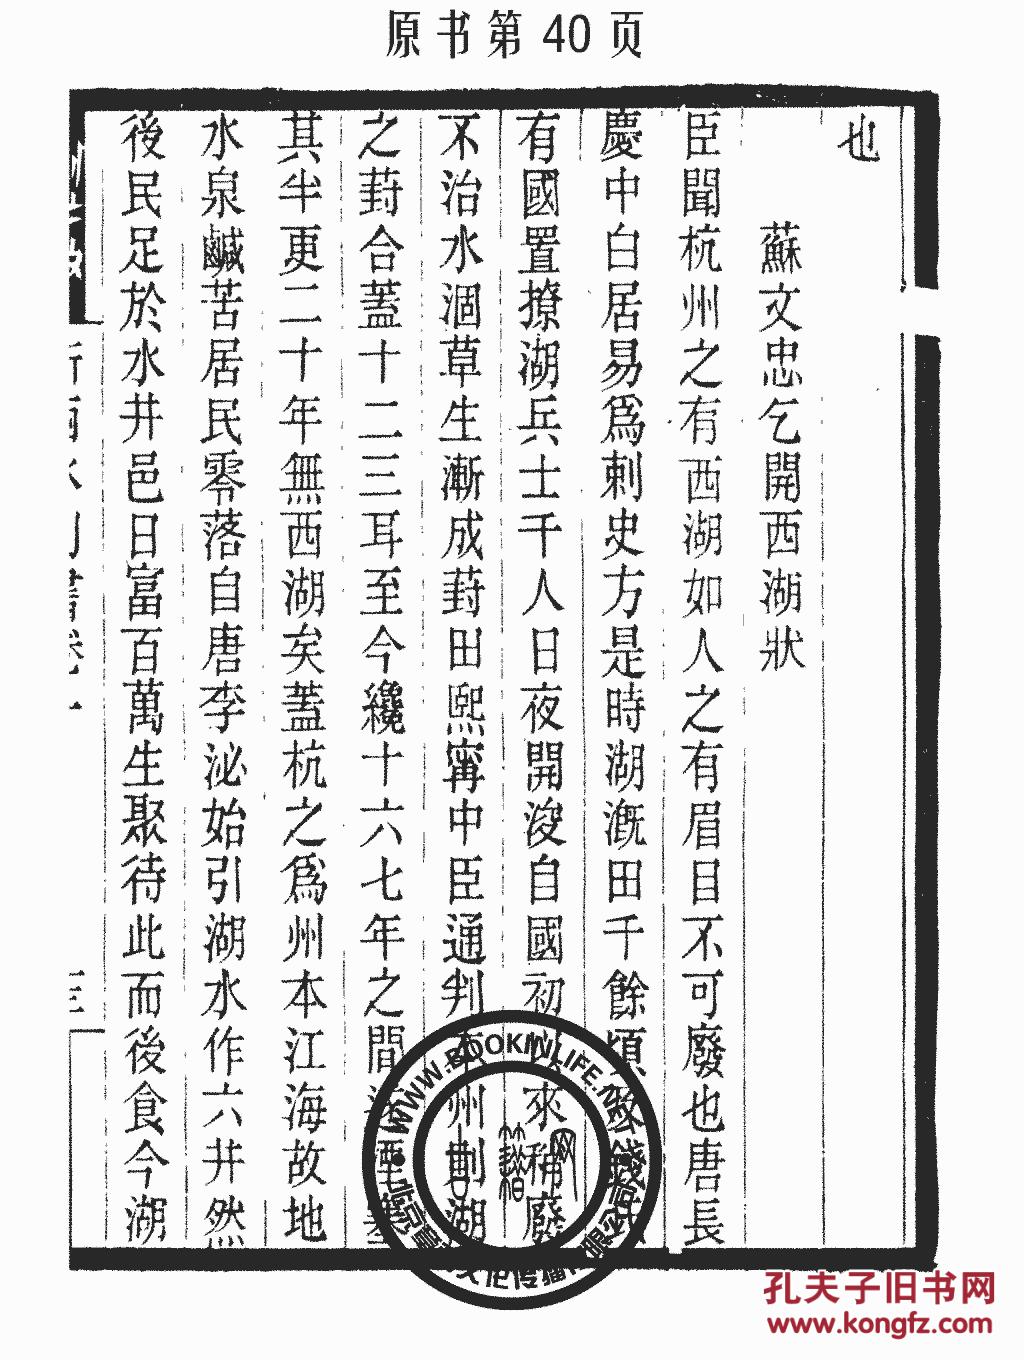 原书第 40 页
也
蘇文忠乞開西湖狀
臣聞杭州之有西湖如人之有眉目不可廢也唐長
慶中白居易爲刺史方是時湖漑田千餘頃
有國置撩湖兵士千人日夜開浚自國初以來稍廢
不治水涸草生漸成葑田熙寧中臣通判本州劃湖
之葑合蓋十二三耳至今纔十六七年之間
其半更二十年無西湖矣蓋杭之爲州本江海故地
水泉鹹苦居民零落自唐李泌始引湖水作六井然
後民足於水井邑日富百萬生聚待此而後食今湖
WWW.BOOKINLIFE.N
孔夫子旧书网
www.kongfz.com